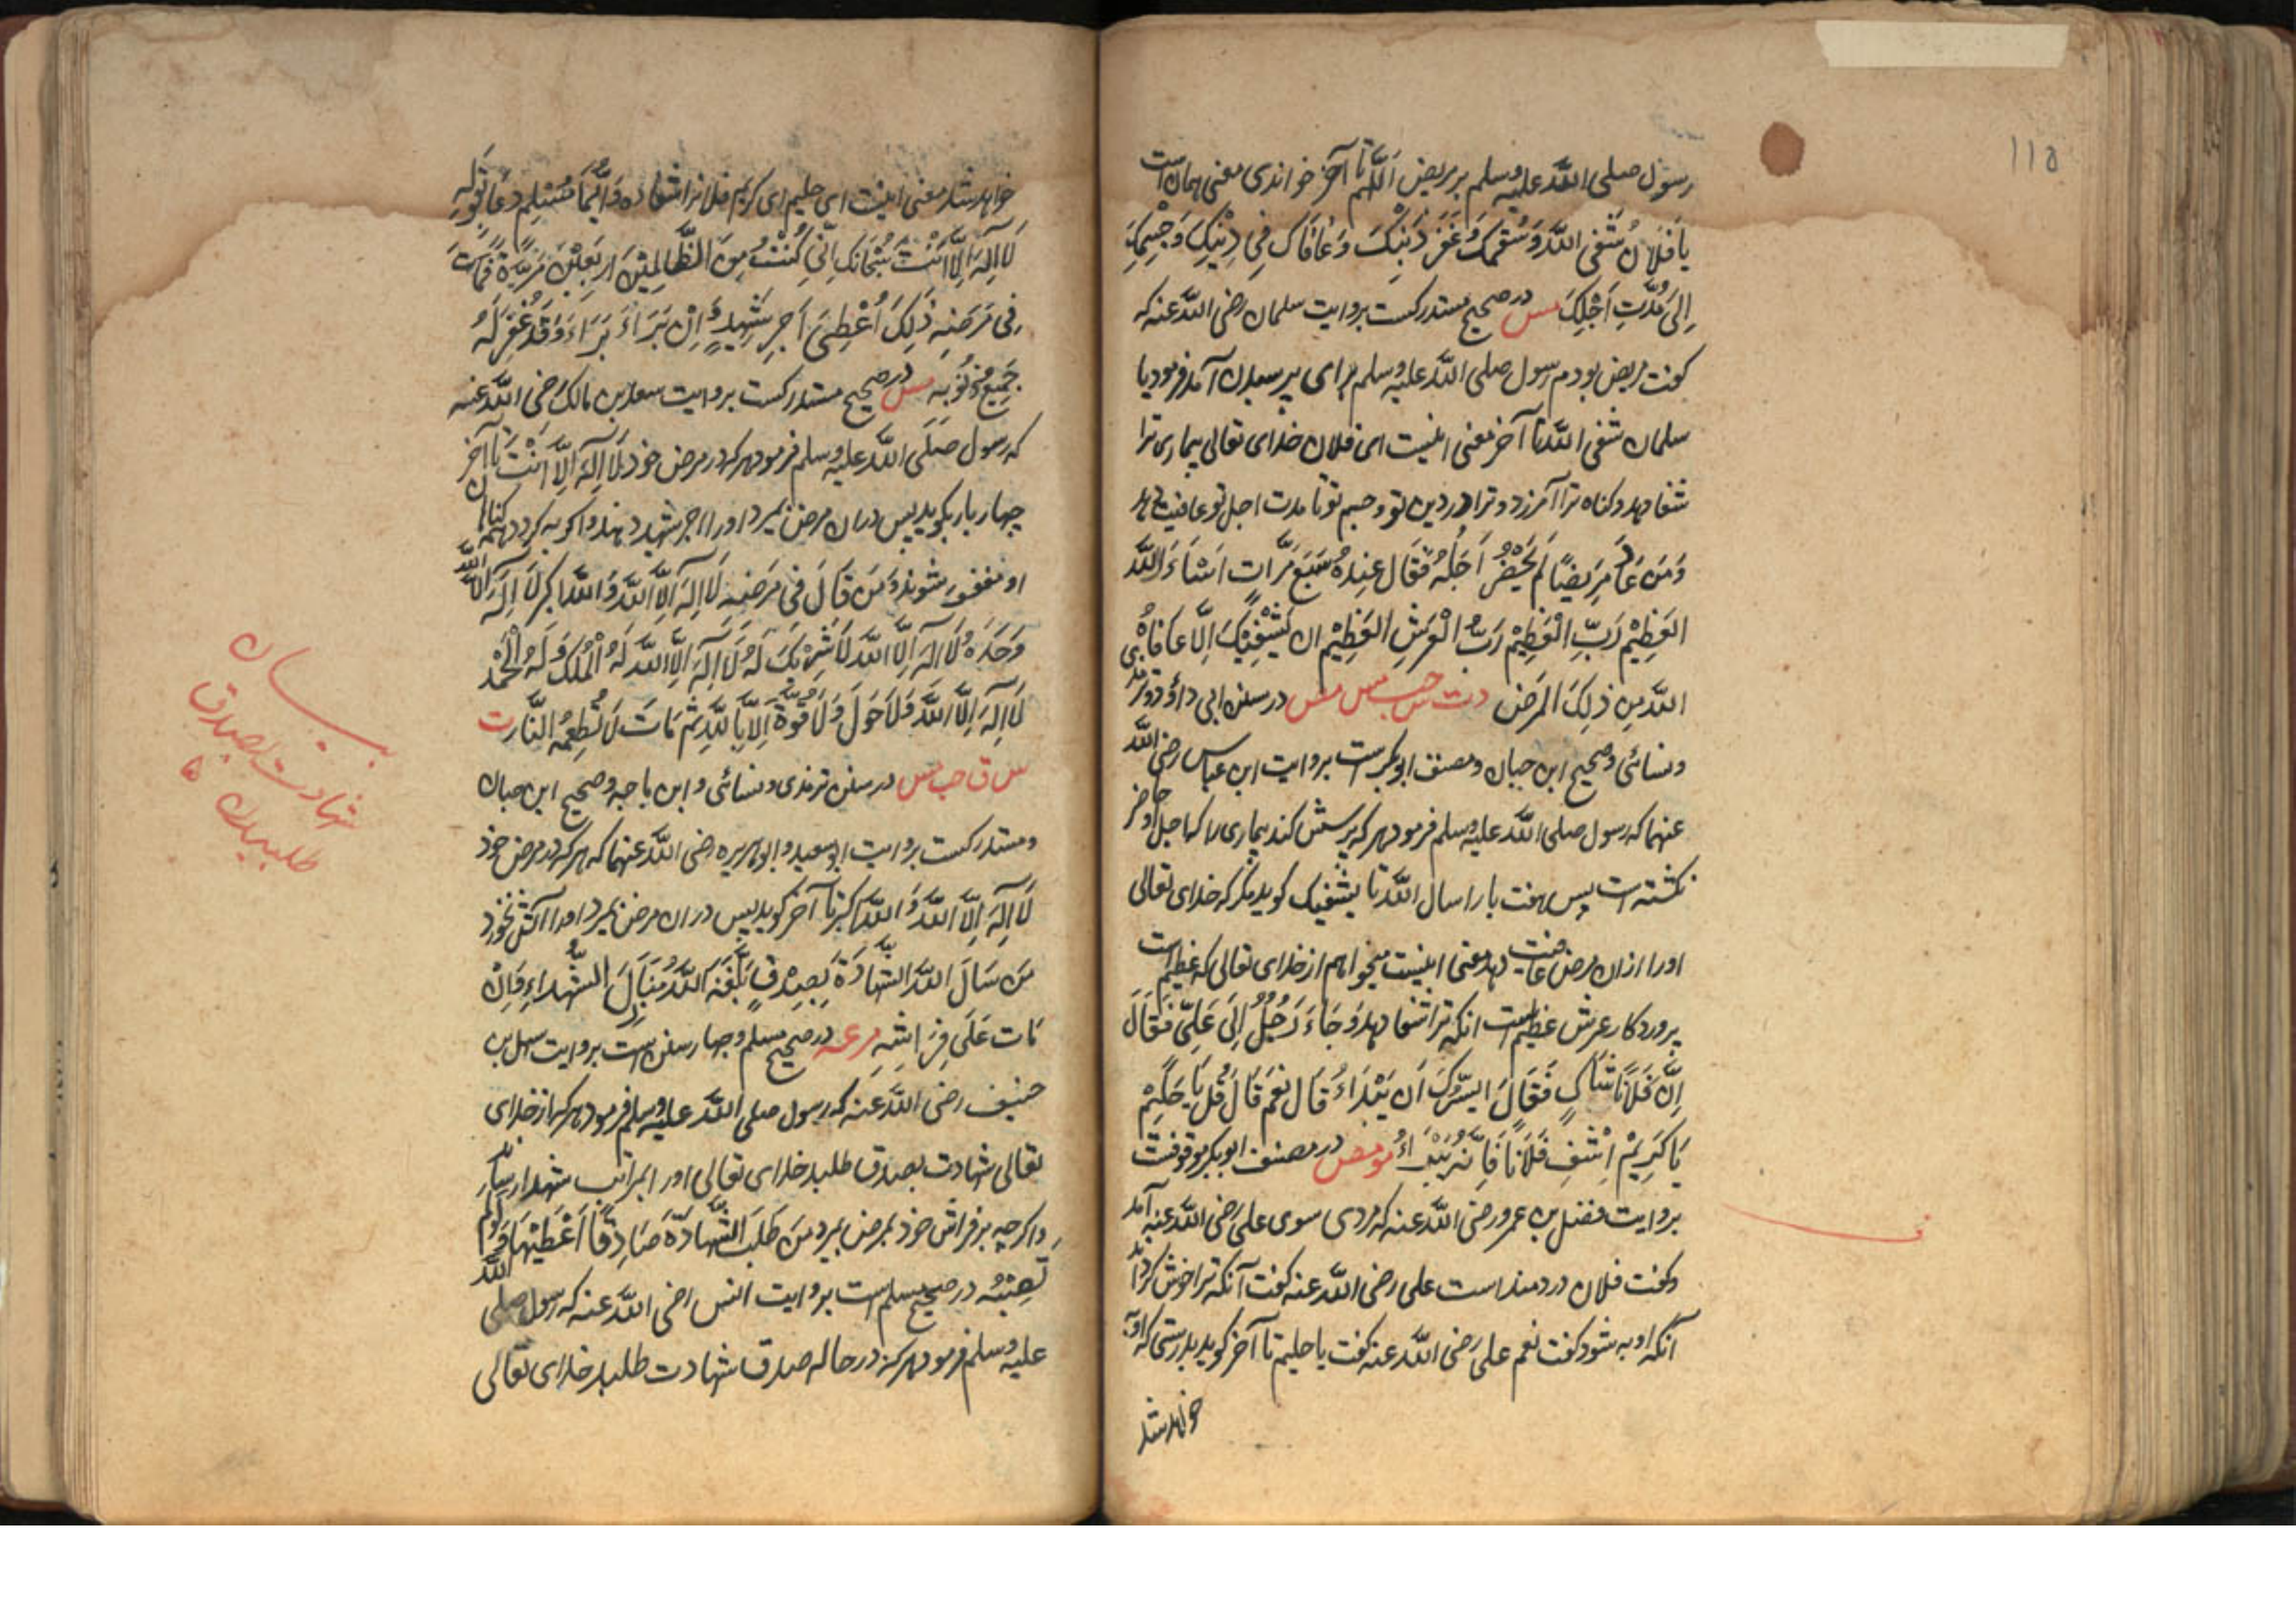 ١١٥
رسول صلی الله علیه وسلم بر مریض اللّهم تا آخر خواندی معنی همان است
یَا فُلَانُ شَفَی اللّهُ وَسُقْمَكَ وَغَفَرَ ذَنْبَكَ وَعَافَاكَ فِی دِیْنِكَ وَجِسْمِكَ
اِلَی مُدَّتِ اَجَلِكَ مس در صحیح مستدرکست بروایت سلمان رضی اللّه عنه که
کفت مریض بودم رسول صلی اللّه علیه وسلم برای پرسیدن آمد فرمود یا
سلمان شفی اللّه تا آخر معنی اینست ای فلان خدای تعالی بیماری ترا
شفا دهد وکناه ترا آمرزد و ترا در دین تو و جسم تو تا مدت اجل تو عافیت دهد
وَمَنْ عَادَ مَرِیضًا لَمْ یَحْضُرْ اَجَلُهُ فَقَالَ عِنْدَهُ سَبْعَ مَرَّاتٍ اَسْئَاَلُ اللّهَ
العَظِیْمَ رَبِّ الْعَظِیْمِ رَبُّ الْعَرْشِ العَظِیْمِ ان یَشْفِیَكَ اِلَّا عَافَاهُ
اللّهُ مِن ذلِكَ المَرَضِ د ت س حب مس مص در سنن ابی داؤد وترمذ
ونسائی وصحیح ابن حبان ومصنف ابوبکرست بروایت ابن عباس رضی اللّه
عنهما که رسول صلی اللّه علیه وسلم فرمود هرکه پرسش کند بیماری را که اجل او حاضر
نکشته است پس هفت بار اسال اللّه تا یشفیک کوید مکر که خدای تعالی
او را ازان مرض عافیت دهد معنی اینست میخواهم از خدای تعالی که عظیم است
پروردکار عرش عظیم است انکه ترا شفا دهد وَجَاءَ رَجُلٌ اِلَی عَلِیٍّ فَقَالَ
اِنَّ فُلَانًا شَاكٍ فَقَالَ اَیَسُرُّكَ اَن یَبْرَاءَ قَالَ نَعَمْ قَالَ قُلْ یَا حَلِیْمُ
یَا کَرِیْمُ اِشْفِ فُلَانًا فَاِنَّهُ یَبْرَاءُ مو مص در مصنف ابوبکر موقوفست
بروایت فضل بن عمرو رضی اللّه عنه که مردی سوی علی رضی اللّه عنه آمد
وکفت فلان دردمند است علی رضی اللّه عنه کفت آنکه ترا خوش کرداند
آنکه او به شود کفت نعم علی رضی اللّه عنه کفت یا حلیم تا آخر کوید بدرستی که او به
خواهد شد
خواهد شد معنی اینست ای حلیم ای کریم فلانرا شفا ده وَاَیُّمَا مُسْلِمٍ دَعَا بِقَوْلِهِ
لَا اِلهَ اِلَّا اَنْتَ سُبْحَانَكَ اِنِّی کُنْتُ مِنَ الظَّالِمِیْنَ اَرْبَعِیْنَ مَرَّةً فَمَاتَ
فِی مَرَضِهِ ذلِكَ اُعْطِیَ اَجْرَ شَهِیدٍ وَاِنْ بَرَاءَ بَرَاءَ وَقَدْ غُفِرَ لَهُ
جَمِیْعُ ذُنُوبِهِ مس در صحیح مستدرکست بروایت سعد بن مالک رضی اللّه عنه
که رسول صلی اللّه علیه وسلم فرمود هرکه در مرض خود لَا اِلهَ اِلَّا اَنْتَ تا آخر
چهار بار بکوید پس دران مرض بمیرد او را اجر شهید دهند واکر به کردد همه کناهان
او مغفور شوند وَمَن قَالَ فِی مَرَضِهِ لَا اِلهَ اِلَّا اللّهُ وَاللّهُ اَکْبَرُ لَا اِلهَ اِلَّا اللّهُ
وَحْدَهُ لَا اِلهَ اِلَّا اللّهُ لَا شَرِیْكَ لَهُ لَا اِلهَ اِلَّا اللّهُ لَهُ الْمُلْكُ وَلَهُ الْحَمْدُ
لَا اِلهَ اِلَّا اللّهُ وَلَا حَوْلَ وَلَا قُوَّةَ اِلَّا بِاللّهِ ثُمَّ مَاتَ لَمْ تُطْعِمْهُ النَّار ت
س ق حب مس در سنن ترمذی ونسائی وابن ماجه وصحیح ابن حبان
ومستدرکست بروایت ابوسعید وابوهریره رضی اللّه عنهما که هرکه در مرض خود
لَا اِلهَ اِلَّا اللّهُ وَاللّهُ اَکبر تا آخر کوید پس دران مرض بمیرد او را آتش نخورد
مَن سَالَ اللّهَ الشَّهَادَةَ بِصِدْقٍ بَلَّغَهُ اللّهُ مَنَازِلَ الشُّهَدَاءِ وَاِنْ
مَات عَلَی فِرَاشِهِ م عه در صحیح مسلم وچهار سنن است بروایت سهل بن
حنیف رضی اللّه عنه که رسول صلی اللّه علیه وسلم فرمود هرکه از خدای
تعالی شهادت بصدق طلبد خدای تعالی او را بمراتب شهدا رساند
واکرچه بر فراش خود بمرض بمیرد مَن طَلَبَ الشَّهَادَةَ صَادِقًا اُعْطِیَهَا وَلَوْ لَمْ
تُصِبْهُ در صحیح مسلم است بروایت انس رضی اللّه عنه که رسول صلی اللّه
علیه وسلم فرمود هرکه در حاله صدق شهادت طلبد خدای تعالی
بیان
شهادت بصدق
طلبیدن